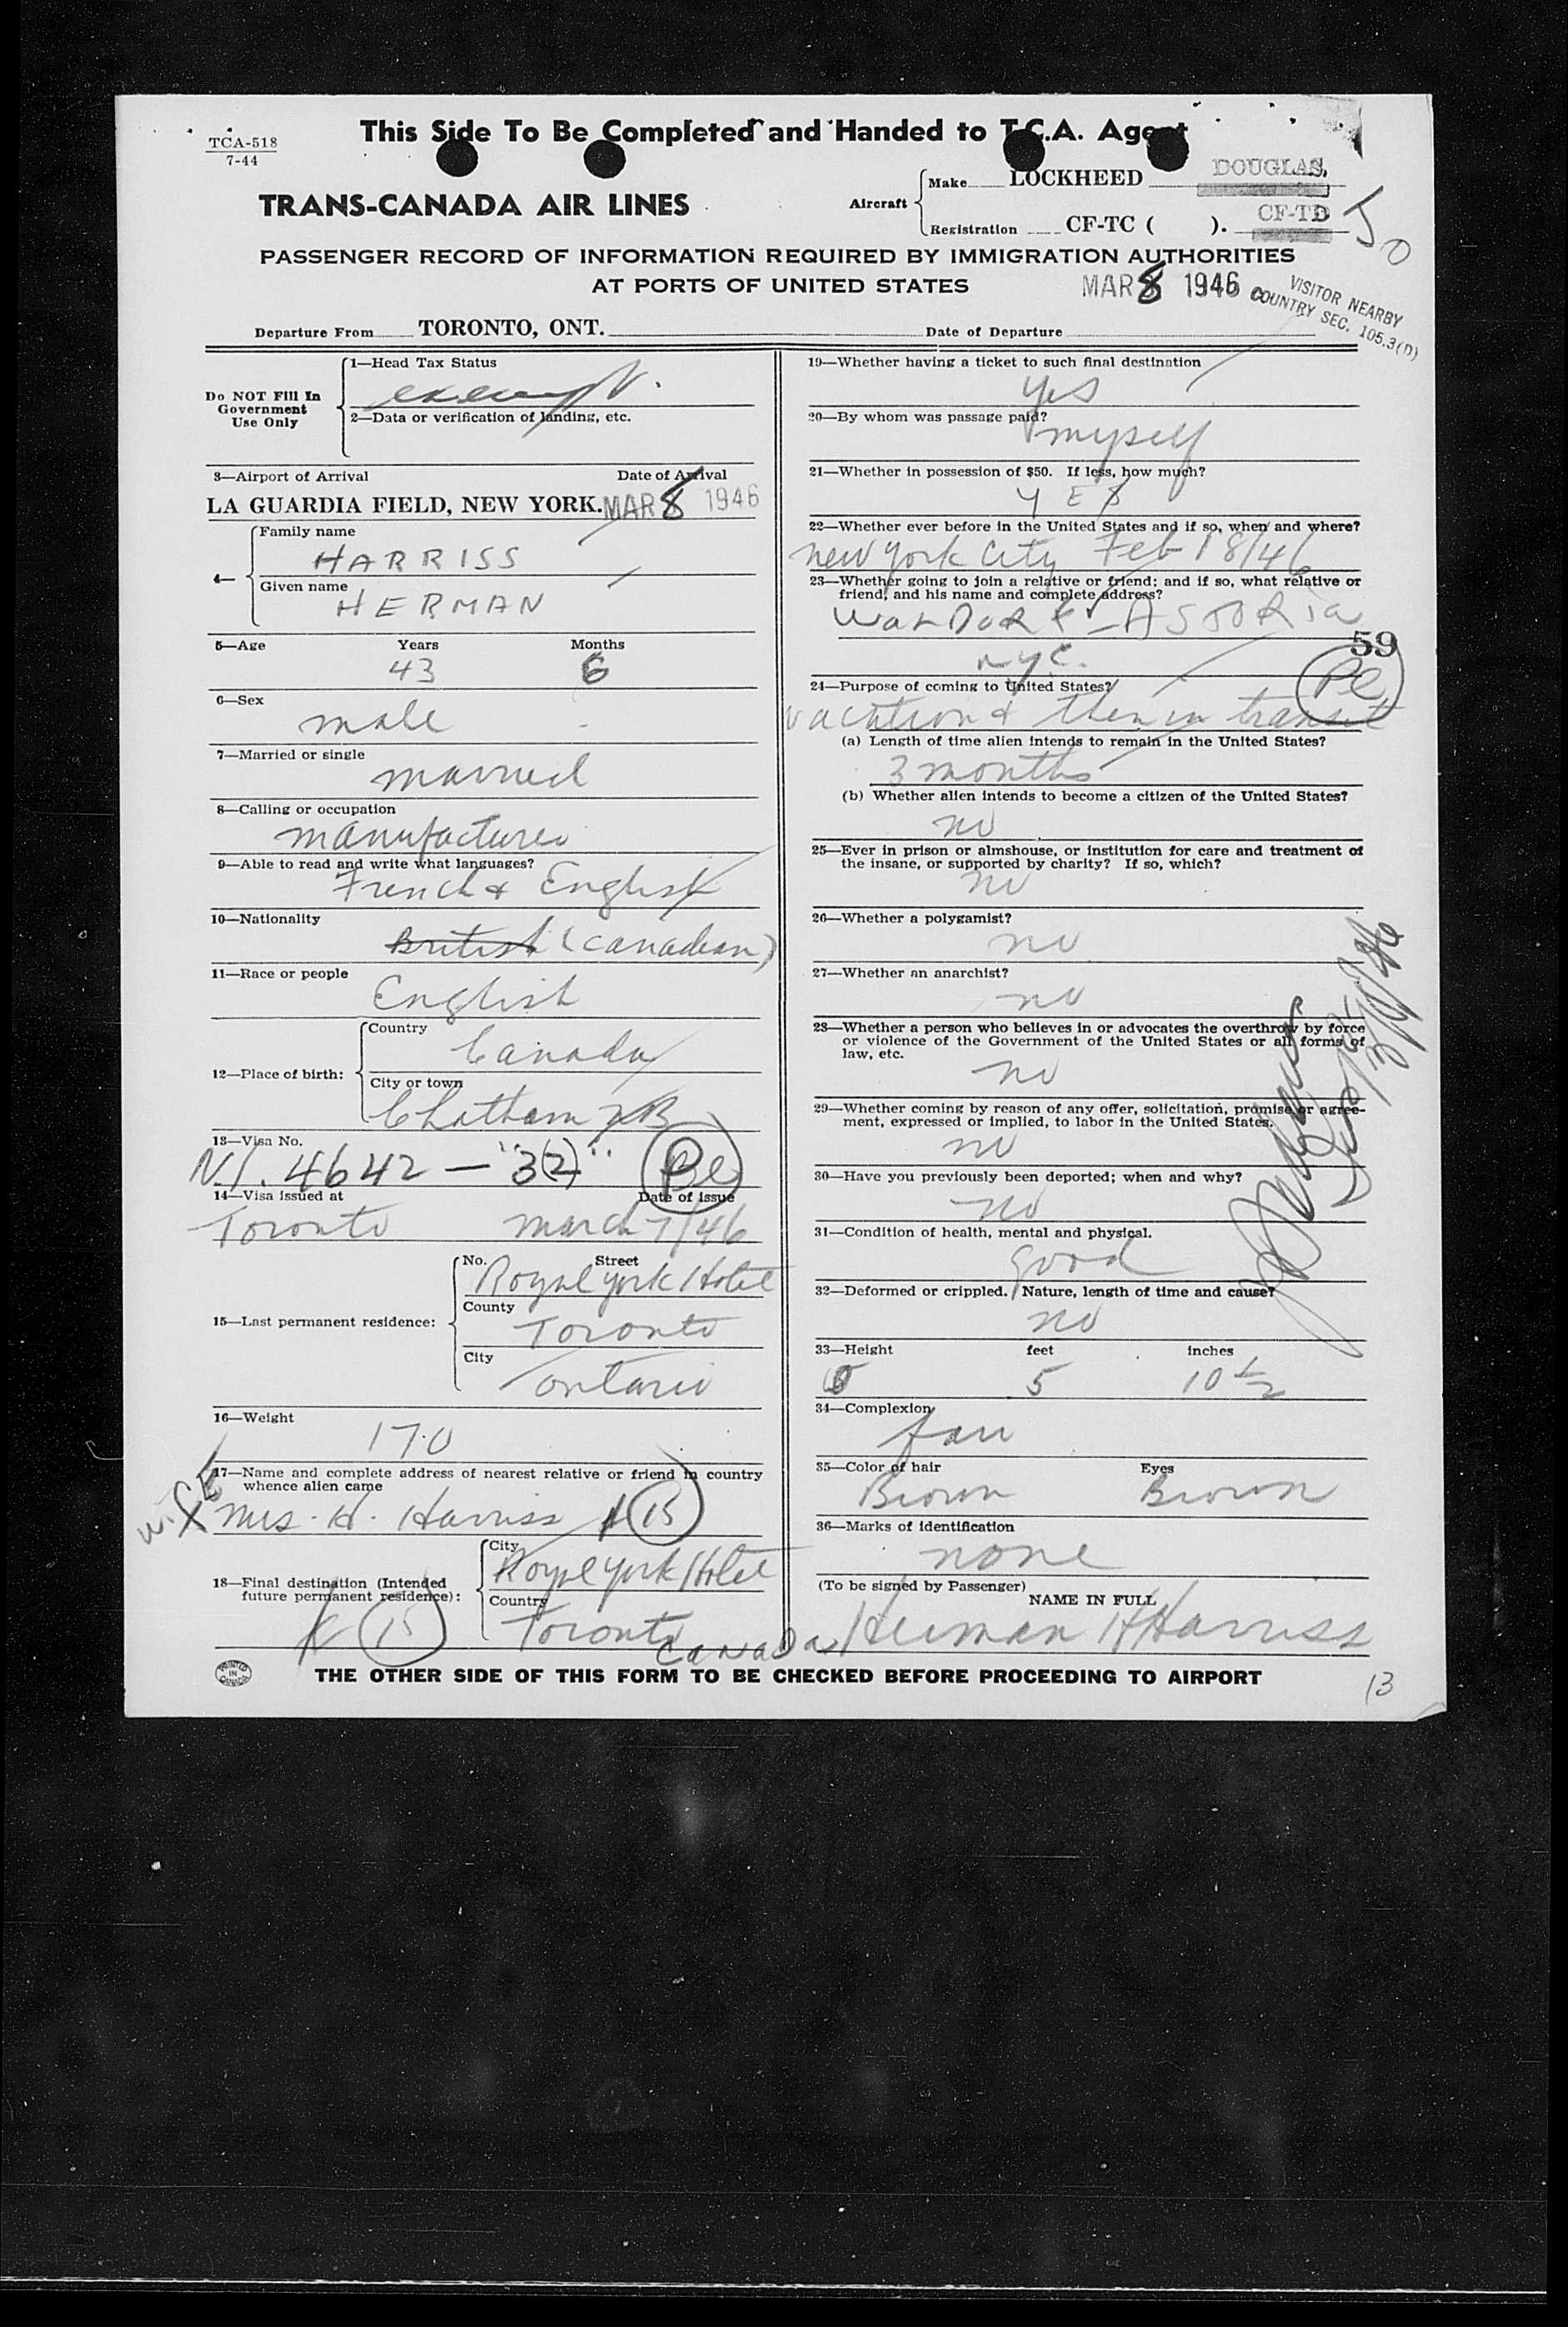 This Side To Be Completed and Handed to T.C.A. Agent
TCA-518
7-44
TRANS-CANADA AIR LINES
Aircraft
Make LOCKHEED DOUGLAS,
Registration CF-TC ( ). CF-TD
PASSENGER RECORD OF INFORMATION REQUIRED BY IMMIGRATION AUTHORITIES
AT PORTS OF UNITED STATES
MAR 8 1946
VISITOR NEARBY
COUNTRY SEC. 105.3(D)
Departure From TORONTO, ONT. Date of Departure
Do NOT Fill In
Government
Use Only
1—Head Tax Status
exempt.
2—Data or verification of landing, etc.
3—Airport of Arrival Date of Arrival
LA GUARDIA FIELD, NEW YORK. MAR 8 1946
4—
Family name
HARRISS
Given name
HERMAN
5—Age Years Months
43 6
6—Sex
male
7—Married or single
married
8—Calling or occupation
manufacturer
9—Able to read and write what languages?
French & English
10—Nationality
British (Canadian)
11—Race or people
English
12—Place of birth:
Country
Canada
City or town
Chatham NB
13—Visa No.
N.I. 4642 — "3(2)"
14—Visa issued at Date of issue
Toronto march 7/46
15—Last permanent residence:
No. Street
Royal York Hotel
County
Toronto
City
Ontario
16—Weight
170
17—Name and complete address of nearest relative or friend in country
whence alien came
wife
Mrs. H. Harriss (15)
18—Final destination (Intended
future permanent residence):
(15)
City
Royal York Hotel
Country
Toronto
Canada
19—Whether having a ticket to such final destination
yes
20—By whom was passage paid?
myself
21—Whether in possession of $50. If less, how much?
YES
22—Whether ever before in the United States and if so, when and where?
New York City Feb 18/46
23—Whether going to join a relative or friend; and if so, what relative or
friend, and his name and complete address?
Waldorf-Astoria
59
NYC.
24—Purpose of coming to United States?
vacation & then in transit
(a) Length of time alien intends to remain in the United States?
3 months
(b) Whether alien intends to become a citizen of the United States?
no
25—Ever in prison or almshouse, or institution for care and treatment of
the insane, or supported by charity? If so, which?
no
26—Whether a polygamist?
no
27—Whether an anarchist?
no
28—Whether a person who believes in or advocates the overthrow by force
or violence of the Government of the United States or all forms of
law, etc.
no
29—Whether coming by reason of any offer, solicitation, promise or agree-
ment, expressed or implied, to labor in the United States.
no
30—Have you previously been deported; when and why?
no
31—Condition of health, mental and physical.
good
32—Deformed or crippled. Nature, length of time and cause?
no
33—Height feet inches
5 10 1/2
34—Complexion
fair
35—Color of hair Eyes
Brown Brown
36—Marks of identification
none
(To be signed by Passenger)
NAME IN FULL
Herman H Harriss
PRINTED IN CANADA
THE OTHER SIDE OF THIS FORM TO BE CHECKED BEFORE PROCEEDING TO AIRPORT
13